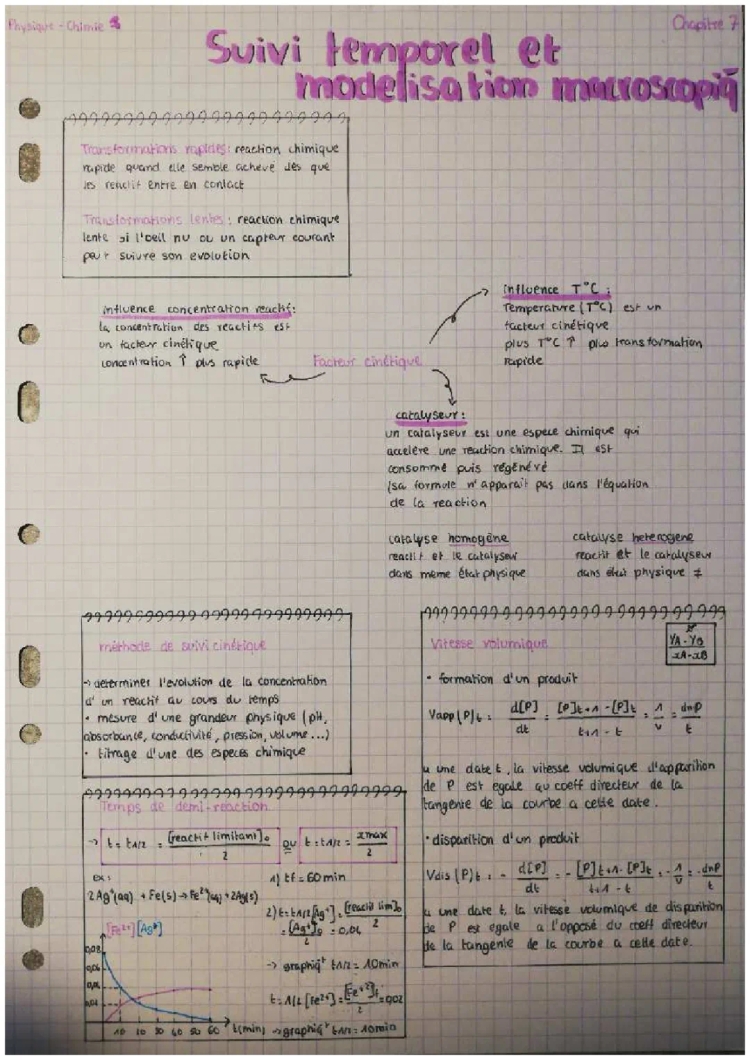 Physique - Chimie
Chapitre 7
Suivi temporel et
modelisation macroscopiq
Transformations rapides: reaction chimique
rapide quand elle semble achevé dès que
les reactif entre en contact
Transformations lentes: reaction chimique
lente si l'oeil nu ou un capteur courant
peut suivre son evolution
influence concentration reactif:
la concentration des reactifs est
un facteur cinétique
concentration ↑ plus rapide
Facteur cinétique
influence T°C :
Temperature (T°C) est un
facteur cinétique
plus T°C ↑ plus transformation
rapide
catalyseur:
un catalyseur est une espece chimique qui
accelere une reaction chimique. Il est
consommé puis régénéré
(sa formule n'apparait pas dans l'équation
de la reaction
catalyse homogène
reactif et le catalyseur
dans meme état physique
catalyse heterogene
reactif et le catalyseur
dans état physique ≠
méthode de suivi cinétique
→ determiner l'evolution de la concentration
d'un reactif au cours du temps
• mesure d'une grandeur physique (pH,
absorbance, conductivité, pression, volume...)
• titrage d'une des especes chimique
Vitesse volumique
YA - YB
xA - xB
• formation d'un produit
Vapp(P)t = d[P]/dt = [P]t+1 - [P]t / t+1 - t = 1/v = dnP/t
a une date t, la vitesse volumique d'apparition
de P est egale au coeff directeur de la
tangente de la courbe a cette date.
• disparition d'un produit
Vdis(P)t = - d[P]/dt = - [P]t+1 - [P]t / t+1 - t = - 1/v = - dnP/t
a une date t, la vitesse volumique de disparition
de P est egale a l'opposé du coeff directeur
de la tangente de la courbe a cette date.
Temps de demi-reaction
→ t = t1/2 = [reactif limitant]0 / 2 ou t = t1/2 = xmax / 2
ex:
2Ag+(aq) + Fe(s) → Fe2+(aq) + 2Ag(s)
1) tf = 60 min
2) t = t1/2 [Ag+] = [reactif lim]0 / 2
= [Ag+]0 / 2 = 0,04
→ graphiqt t1/2 = 10min
t = 1/2 [Fe2+] = [Fe+2]f / 2 = 0,02
→ graphiqt t1/2 = 10min
[Fe2+] [Ag+]
0,08
0,06
0,04
0,02
10 20 30 40 50 60 t(min)